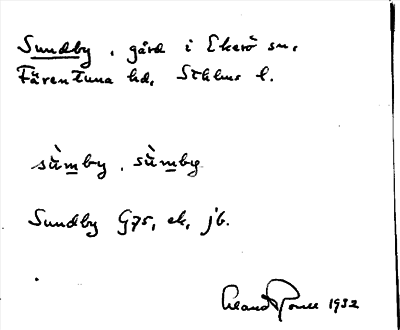 Sundby, gård i Ekerö sn.
Färentuna hd, Sthlms l.
sùmby, sùmby
Sundby G75, ek, jb.
1932